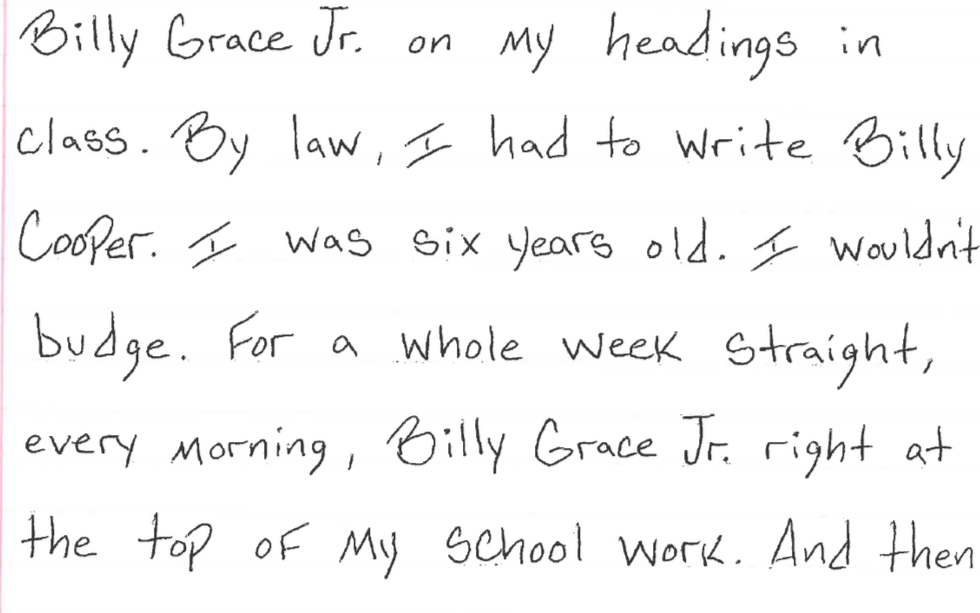 Billy Grace Jr. on my headings in
class. By law, I had to write Billy
Cooper. I was six years old. I wouldn't
budge. For a whole week straight,
every morning, Billy Grace Jr. right at
the top of my school work. And then